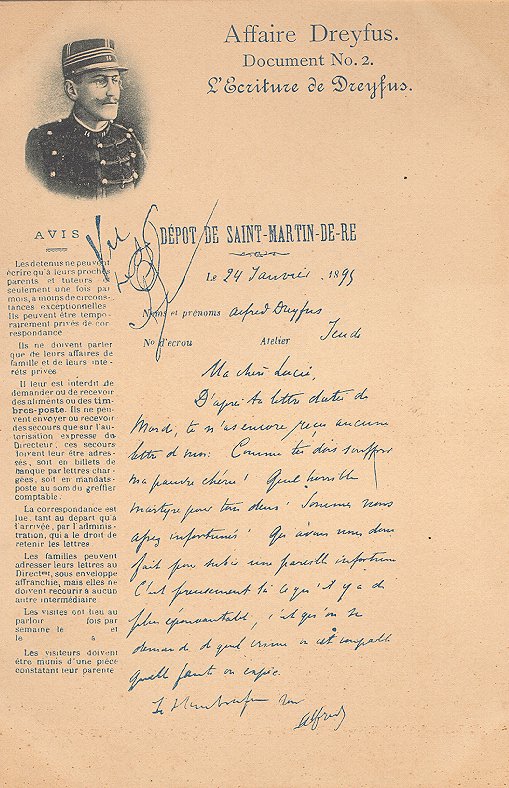 Affaire Dreyfus.
Document No. 2.
L'Ecriture de Dreyfus.
AVIS
Les détenus ne peuvent
écrire qu'à leurs proches
parents et tuteurs et
seulement une fois par
mois, à moins de circons-
tances exceptionnelles
Ils peuvent être tempo-
rairement privés de cor-
respondance
Ils ne doivent parler
que de leurs affaires de
famille et de leurs inté-
rêts privés
Il leur est interdit de
demander ou de recevoir
des aliments ou des tim-
bres-poste. Ils ne peu-
vent envoyer ou recevoir
des secours que sur l'au-
torisation expresse du
Directeur, ces secours
doivent leur être adres-
sés, soit en billets de
banque par lettres char-
gées, soit en mandats-
poste au nom du greffier
comptable.
La correspondance est
lue, tant au départ qu'à
l'arrivée, par l'adminis-
tration, qui a le droit de
retenir les lettres
Les familles peuvent
adresser leurs lettres au
Directeur, sous enveloppe
affranchie, mais elles ne
doivent recourir à aucun
autre intermédiaire
Les visites ont lieu au
parloir fois par
semaine le et
le à
Les visiteurs doivent
être munis d'une pièce
constatant leur parenté
Vu
DÉPOT DE SAINT-MARTIN-DE-RE
Le 24 Janvier 1895
Noms et prénoms Alfred Dreyfus
No d'écrou Atelier Jeudi
Ma chère Lucie,
D'après ta lettre datée de
Mardi, tu n'as encore reçu aucune
lettre de moi. Comme tu dois souffrir
ma pauvre chérie! Quel horrible
martyre pour tous deux! Sommes nous
assez infortunés! Qu'avons nous donc
fait pour subir une pareille infortune
C'est précisément là ce qu'il y a de
plus épouvantable, c'est qu'on se
demande de quel crime on est coupable
quelle faute on expie.
Alfred